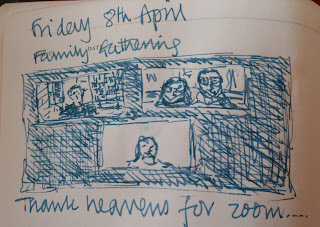 Friday 8th April
Family Gathering
Thank heavens for zoom....